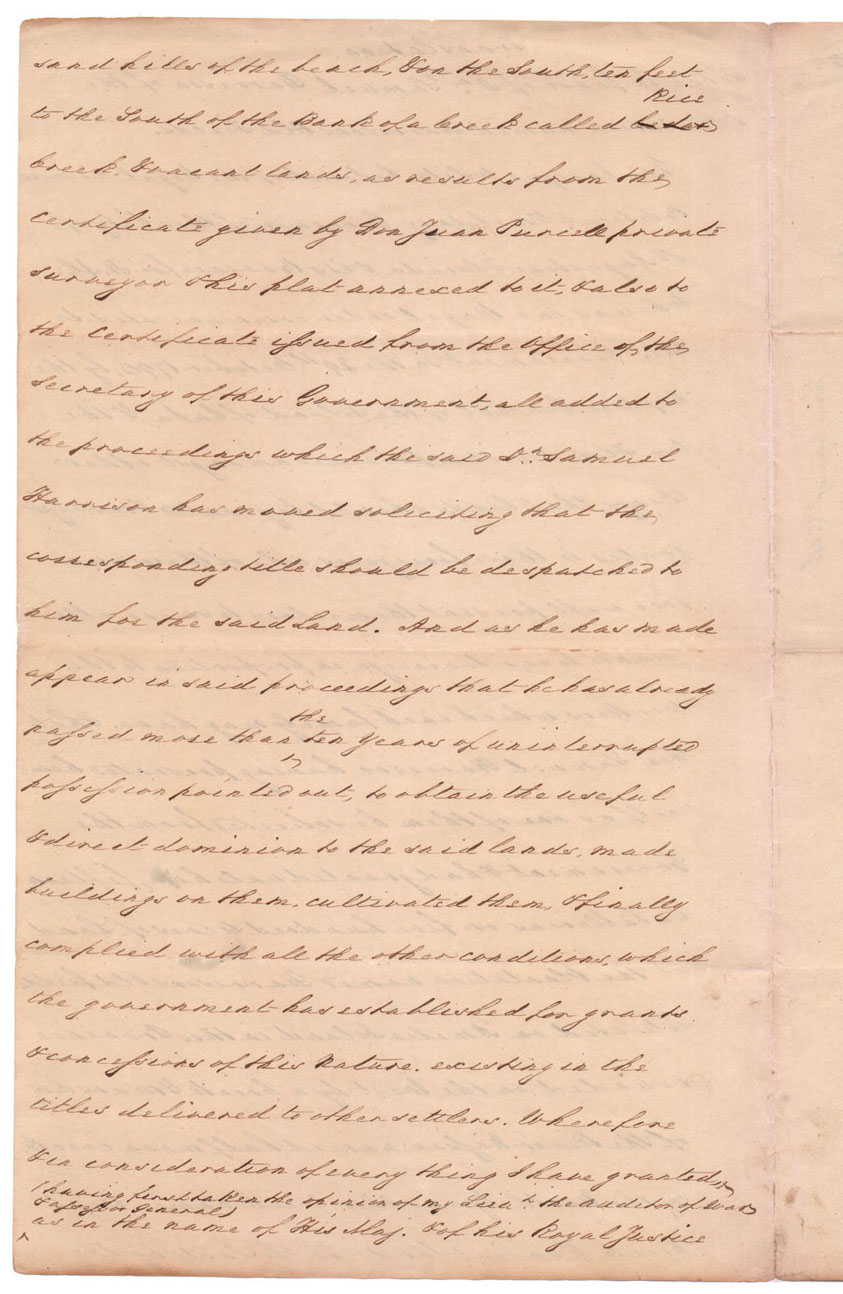 sand hills of the beach, & on the South, ten feet
Rice
to the South of the Bank of a Creek called
Creek. & vacant lands, as results from the
certificate given by Don Juan Purcell private
surveyor & his plat annexed to it, & also to
the certificate issued from the office of the
Secretary of this Government, all added to
the proceedings which the said Dn. Samuel
Harrison has moved soliciting that the
corresponding title should be despatched to
him for the said Land. And as he has made
appear in said proceedings that he has already
the
passed more than ten years of uninterrupted
possession pointed out, to obtain the useful
& direct dominion to the said lands, made
buildings on them, cultivated them, & finally
complied with all the other conditions, which
the government has established for grants
& concessions of this Nature. existing in the
titles delivered to other settlers. Wherefore
& in consideration of every thing I have granted,
(having first taken the opinion of my Lieut. the Auditor of War
& assessor General)
as in the name of His Maj. & of his Royal Justice